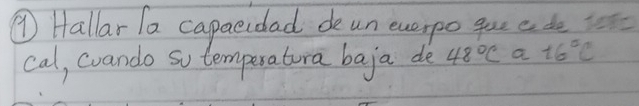 ① Hallar la capacidad de un cuerpo que cede
cal, cuando su temperatura baja de 48°C a 16°C